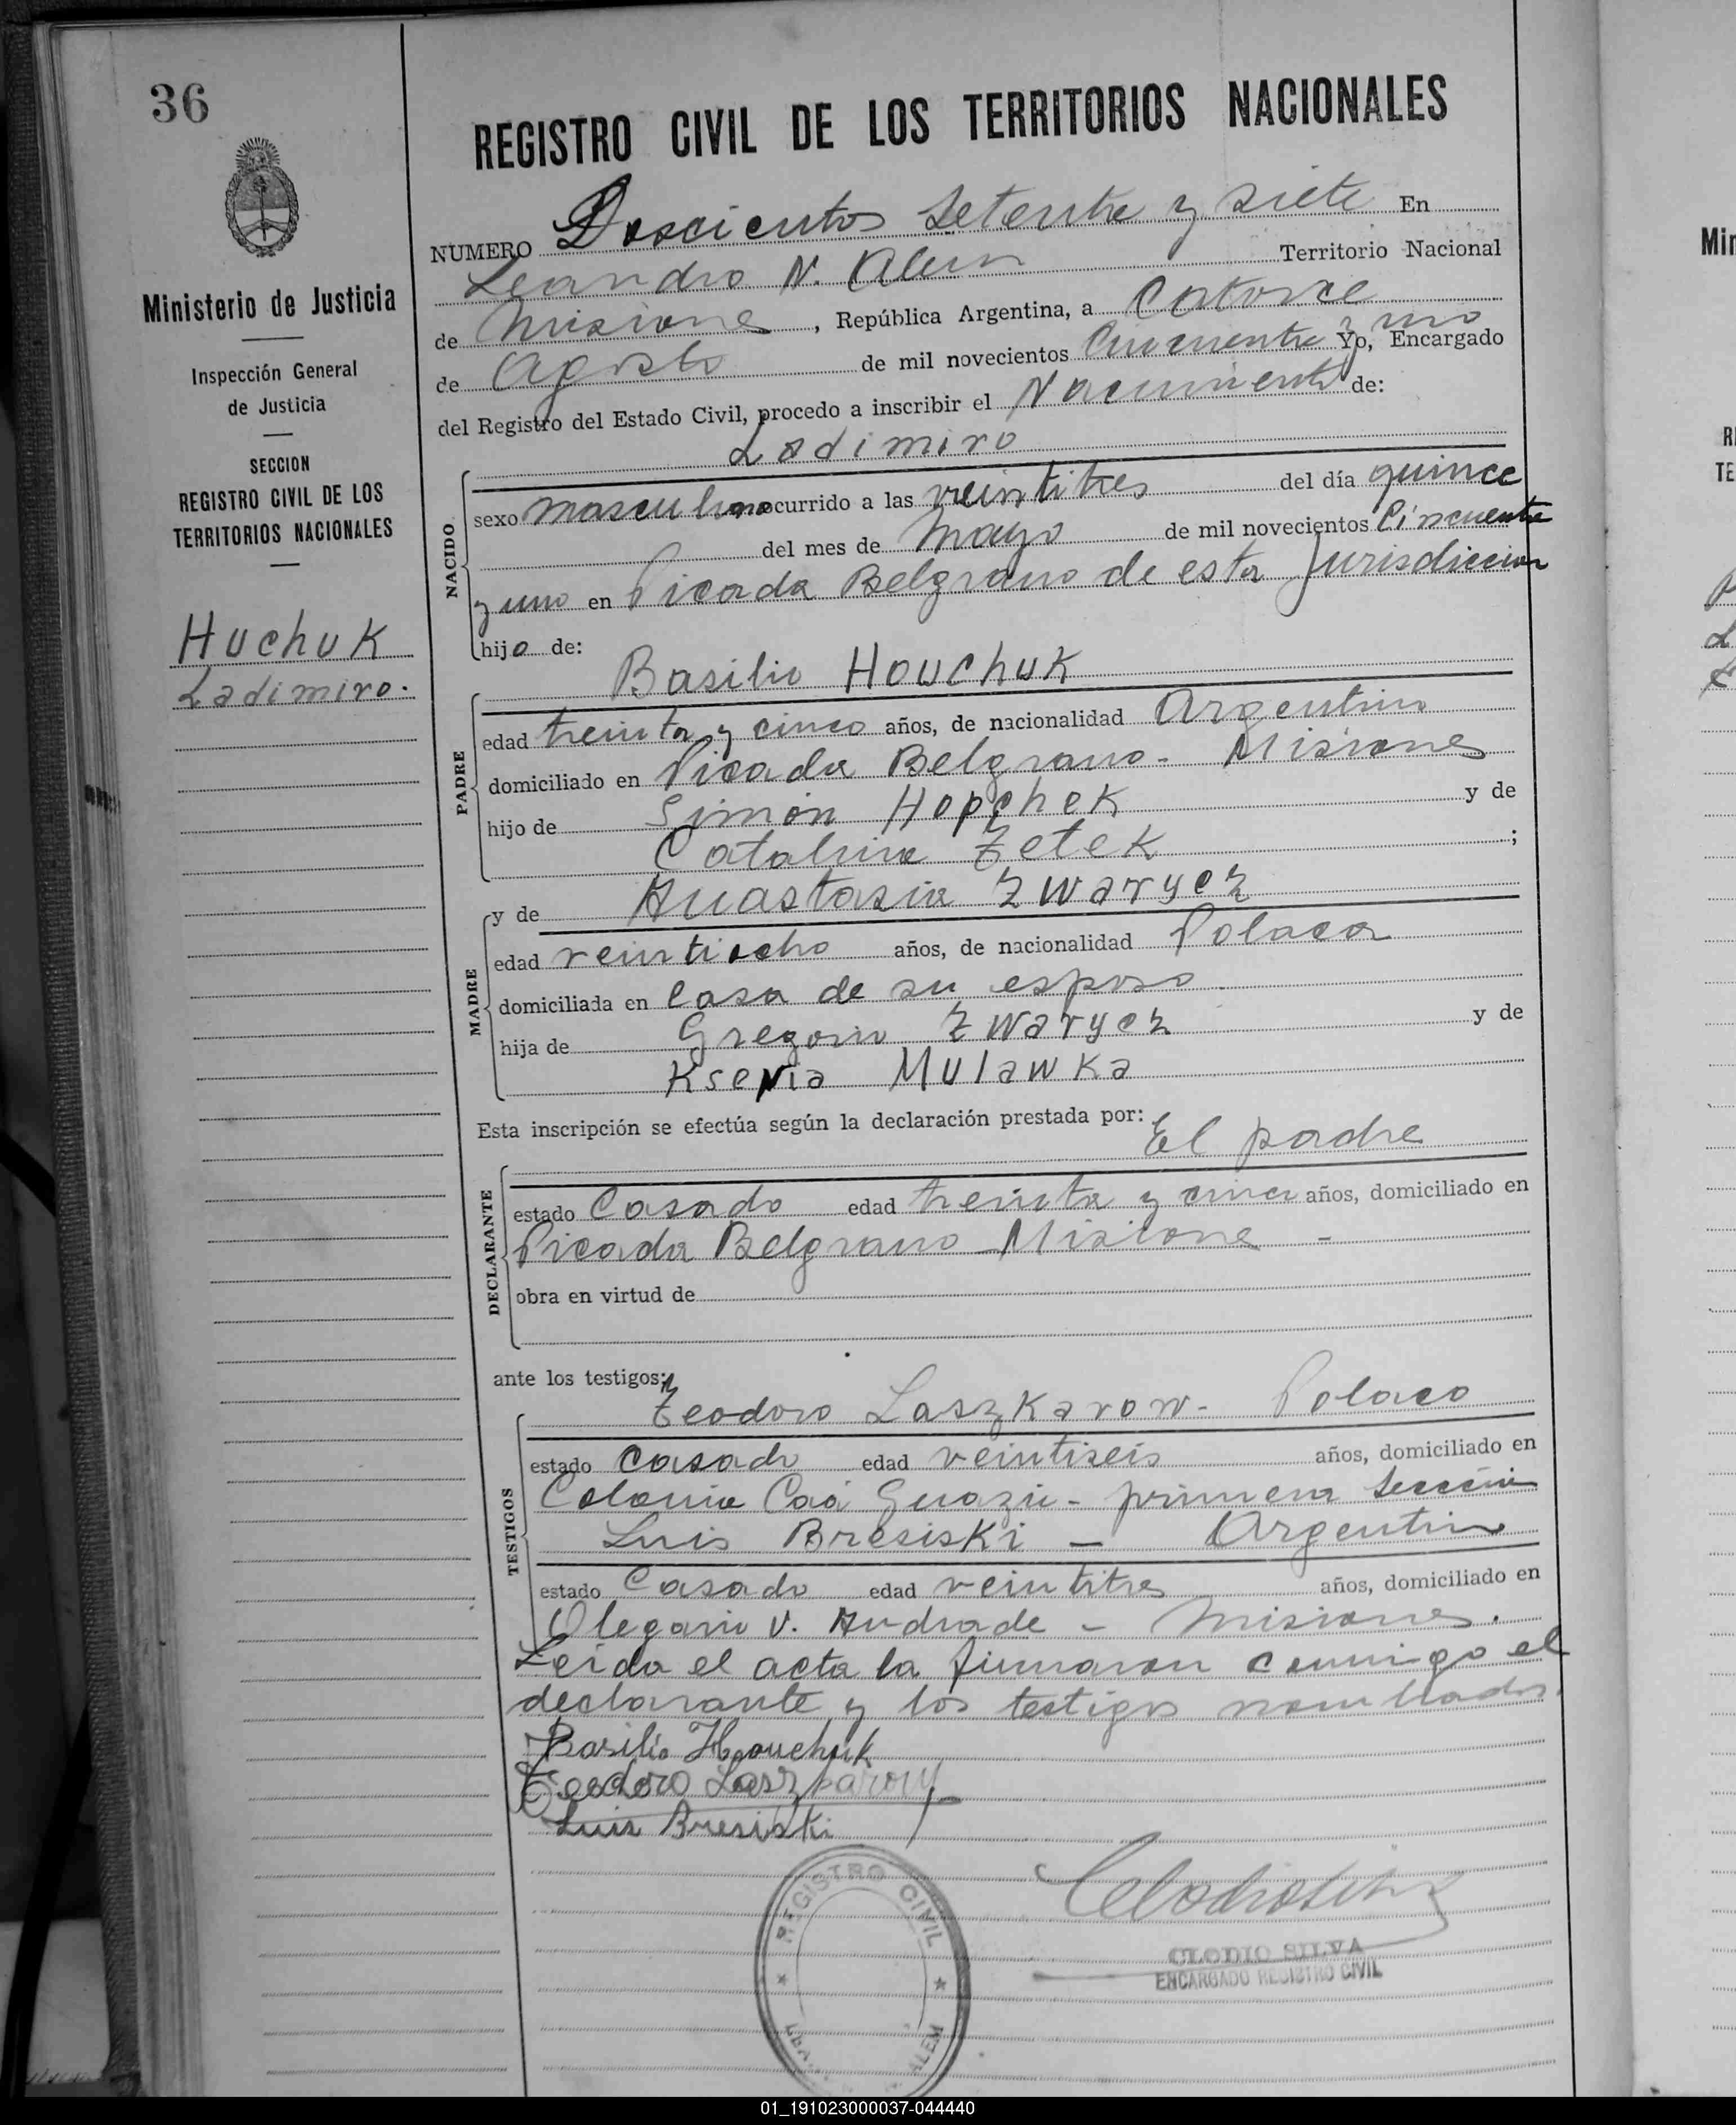 36
Ministerio de Justicia
Inspección General
de Justicia
SECCION
REGISTRO CIVIL DE LOS
TERRITORIOS NACIONALES
Huchuk
Ladimiro.
REGISTRO CIVIL DE LOS TERRITORIOS NACIONALES
NUMERO Doscientos Setenta y siete En
Leandro N. Alem Territorio Nacional
de Misiones, República Argentina, a Catorce
de Agosto de mil novecientos Cincuenta y uno Yo, Encargado
del Registro del Estado Civil, procedo a inscribir el Nacimiento de:
Ladimiro
NACIDO
sexo masculino ocurrido a las veintitres del día quince
del mes de Mayo de mil novecientos Cincuenta
y uno en Picada Belgrano de esta Jurisdiccion
hijo de:
Basilio Houchuk
PADRE
edad treinta y cinco años, de nacionalidad Argentino
domiciliado en Picada Belgrano - Misiones
hijo de Simón Hopchek y de
Catalina Zetek ;
MADRE
y de Anastasia Zwarycz
edad veintiocho años, de nacionalidad Polaca
domiciliada en Casa de su esposo
hija de Gregorio Zwarycz y de
Ksenia Mulawka
Esta inscripción se efectúa según la declaración prestada por:
El padre
DECLARANTE
estado Casado edad treinta y cinco años, domiciliado en
Picada Belgrano Misiones -
obra en virtud de
ante los testigos:
TESTIGOS
Teodoro Laszkarow - Polaco
estado casado edad veintiseis años, domiciliado en
Colonia Caá Guazú - primera Sección
Luis Bresiski - Argentino
estado Casado edad veintitres años, domiciliado en
Olegario V. Andrade - Misiones.
Leída el acta la firmaron conmigo el
declarante y los testigos nombrados.
Basilio Houchuk
Teodoro Laszkarow
Luis Bresiski
REGISTRO CIVIL
ALEM
CLODIO SILVA
ENCARGADO REGISTRO CIVIL
01_191023000037-044440